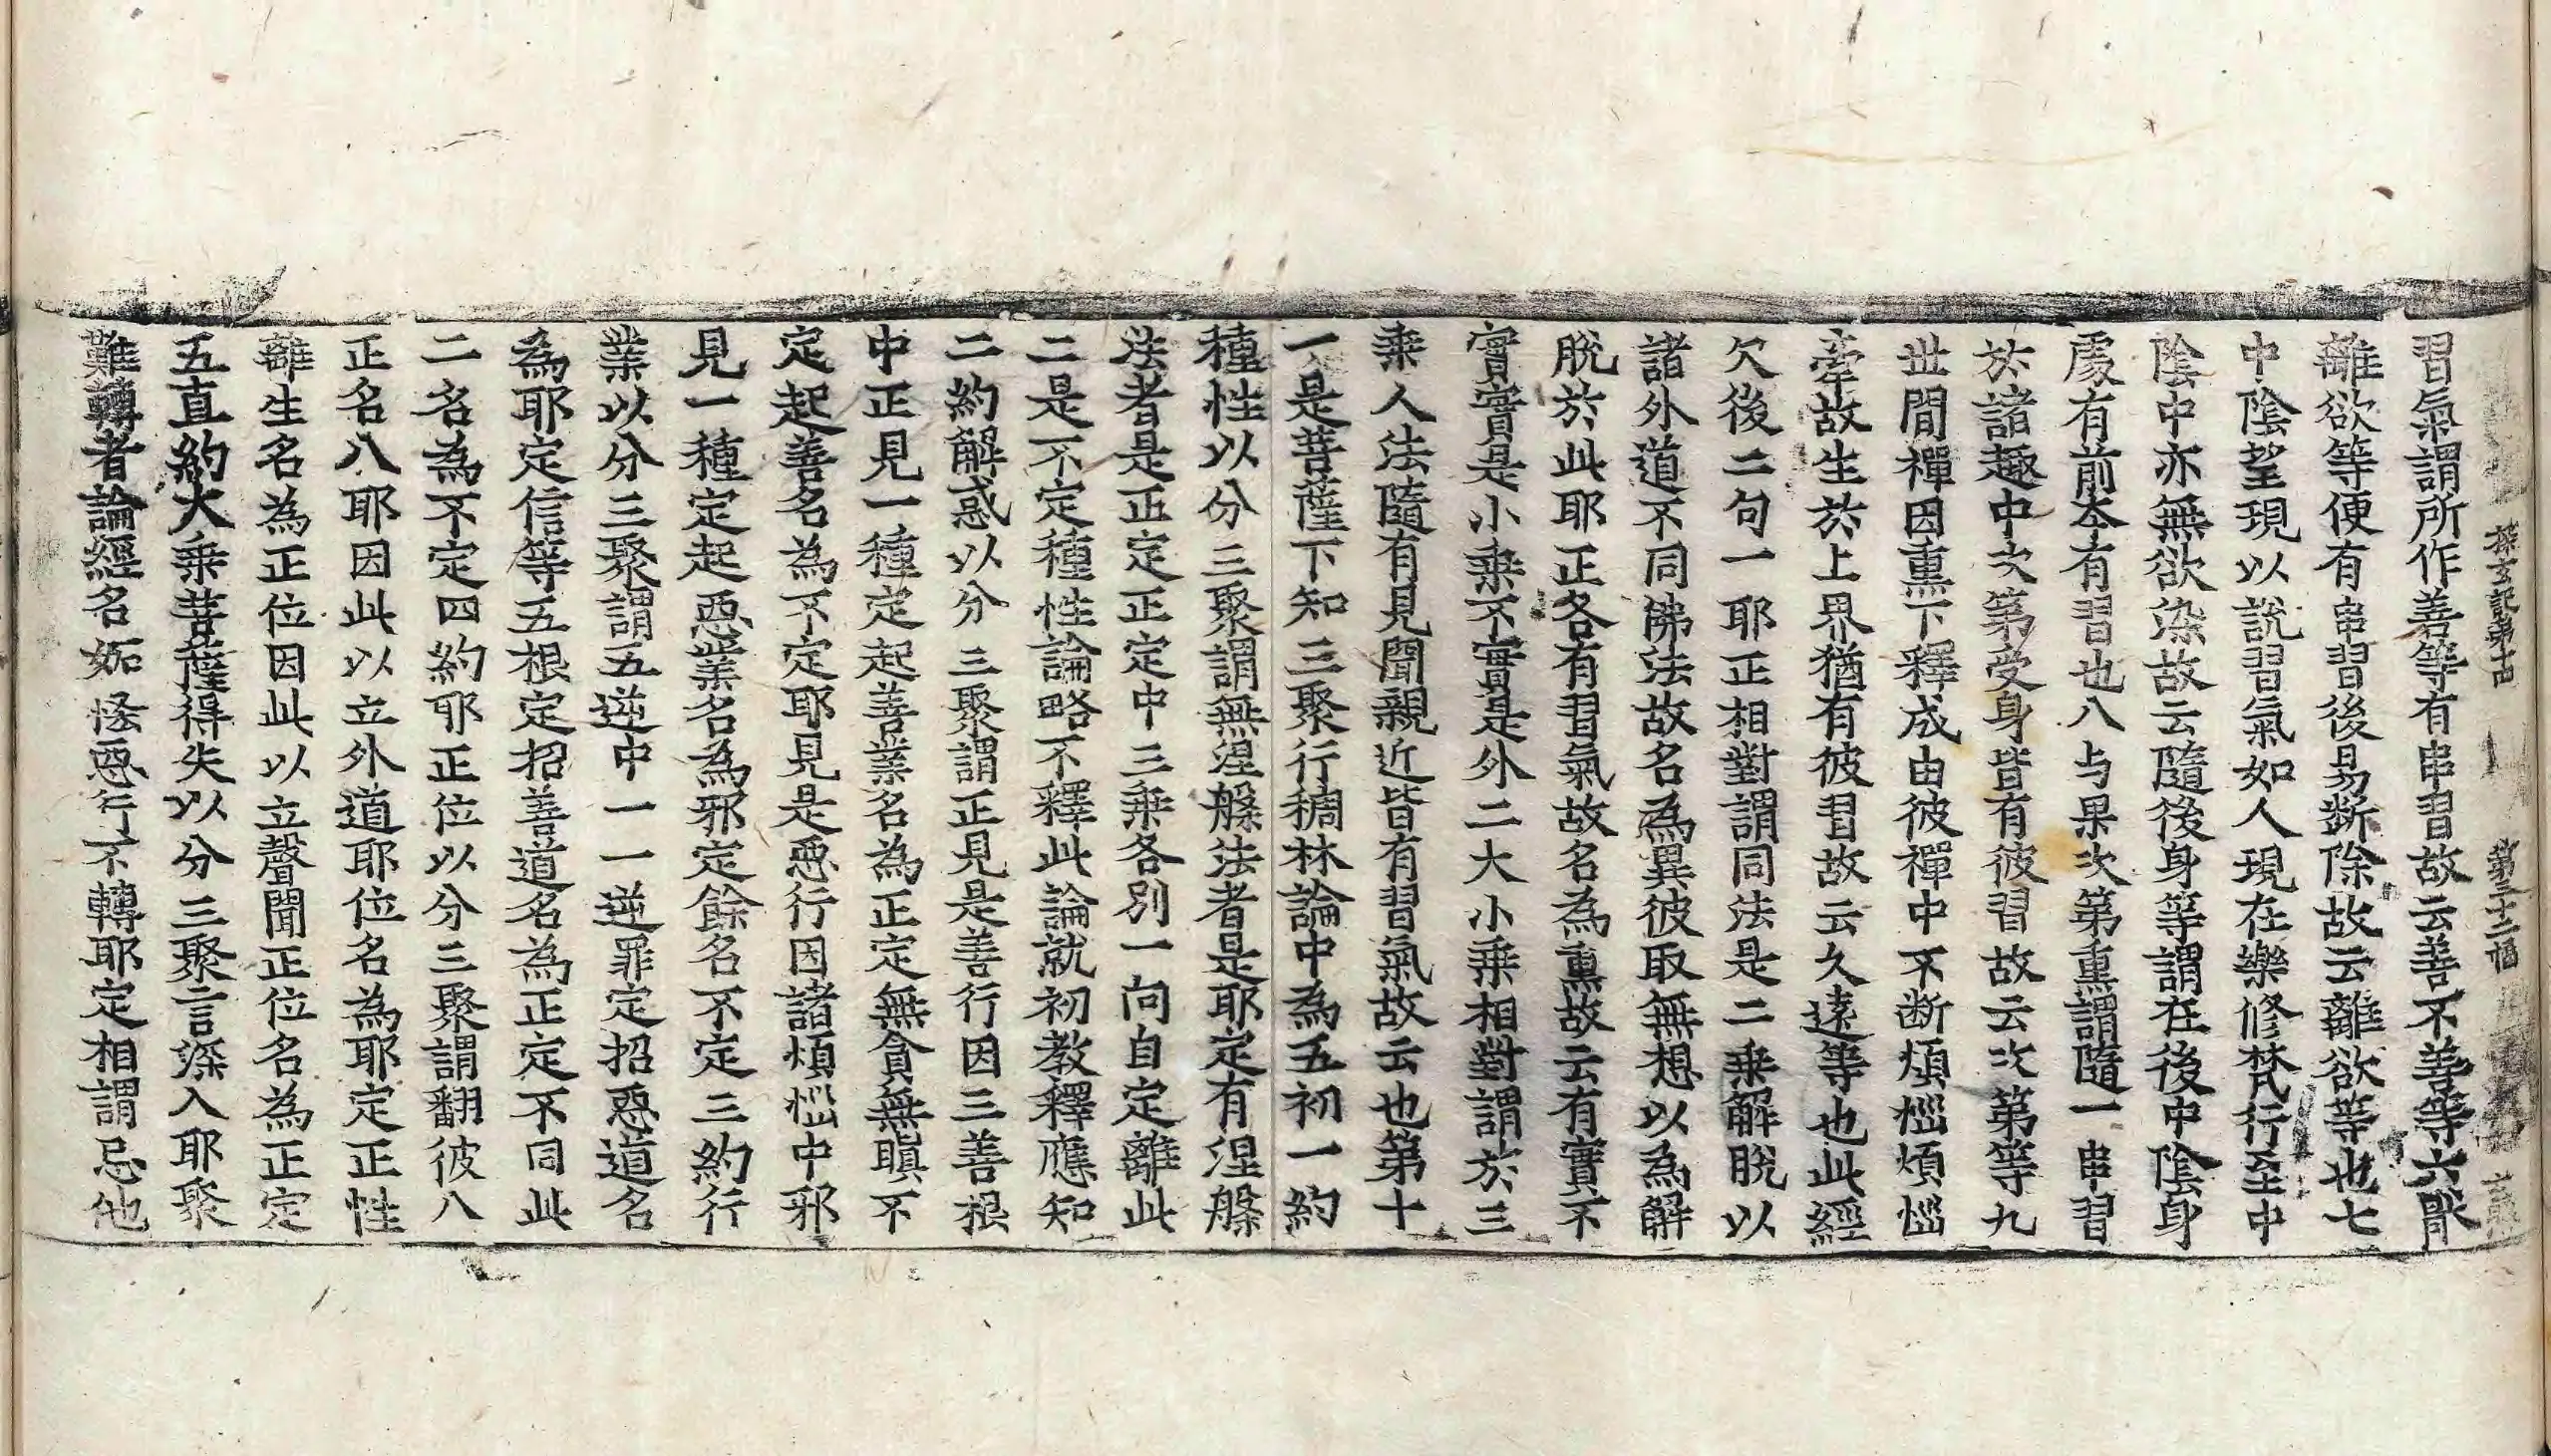 探玄記第十四 第三十二幅
習氣謂所作善等有串習故云善不善等六
離欲等便有串習後易斷除故云離欲等也七
中陰望現以說習氣如人現在樂修梵行至中
陰中亦無欲染故云隨後身等謂在後中陰身
處有前本有習也八与果次第熏謂隨一串習
於諸趣中次第受身皆有彼習故云次第等九
世間禪因熏下釋成由彼禪中不断煩惱煩惱
牽故生於上界猶有彼習故云久遠等也此經
欠後二句一耶正相對謂同法是二乘解脫以
諸外道不同佛法故名為異彼取無想以為解
脫於此耶正各有習氣故名為熏故云有實不
實實是小乘不實是外二大小乘相對謂於三
乘人法隨有見聞親近皆有習氣故云也第十
一是菩薩下知三聚行稠林論中為五初一約
種性以分三聚謂無涅槃法者是耶定有涅槃
法者是正定正定中三乘各別一向自定離此
二是不定種性論略不釋此論就初教釋應知
二約解惑以分三聚謂正見是善行因三善根
中正見一種定起善業名為正定無貪無瞋不
定起善名為不定耶見是惡行因諸煩惱中邪
見一種定起惡業名為邪定餘名不定三約行
業以分三聚謂五逆中一一逆罪定招惡道名
為耶定信等五根定招善道名為正定不同此
二名為不定四約耶正位以分三聚謂翻彼八
正名八耶因此以立外道耶位名為耶定正性
離生名為正位因此以立聲聞正位名為正定
五直約大乘菩薩得失以分三聚言深入耶聚
難轉者論經名妬悋惡行不轉耶定相謂忌他